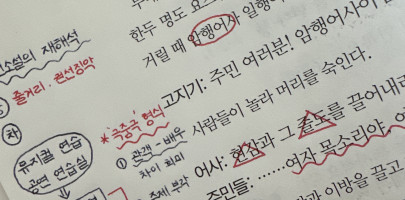 한두 명도 요즈
거릴 때 암행어사 일행
고지기: 주민 여러분! 암행어사이
사람들이 놀라 머리를 숙인다.
어사: 현감과 그 졸도를 끌어내
주민들: ……여자 목소리야, 여
이방을 끌고
소설의 재해석
줄거리. 권선징악
*극중극 형식
① 관객-배우
차이 희미
주제 부각
뮤지컬 연습
공연 연습실